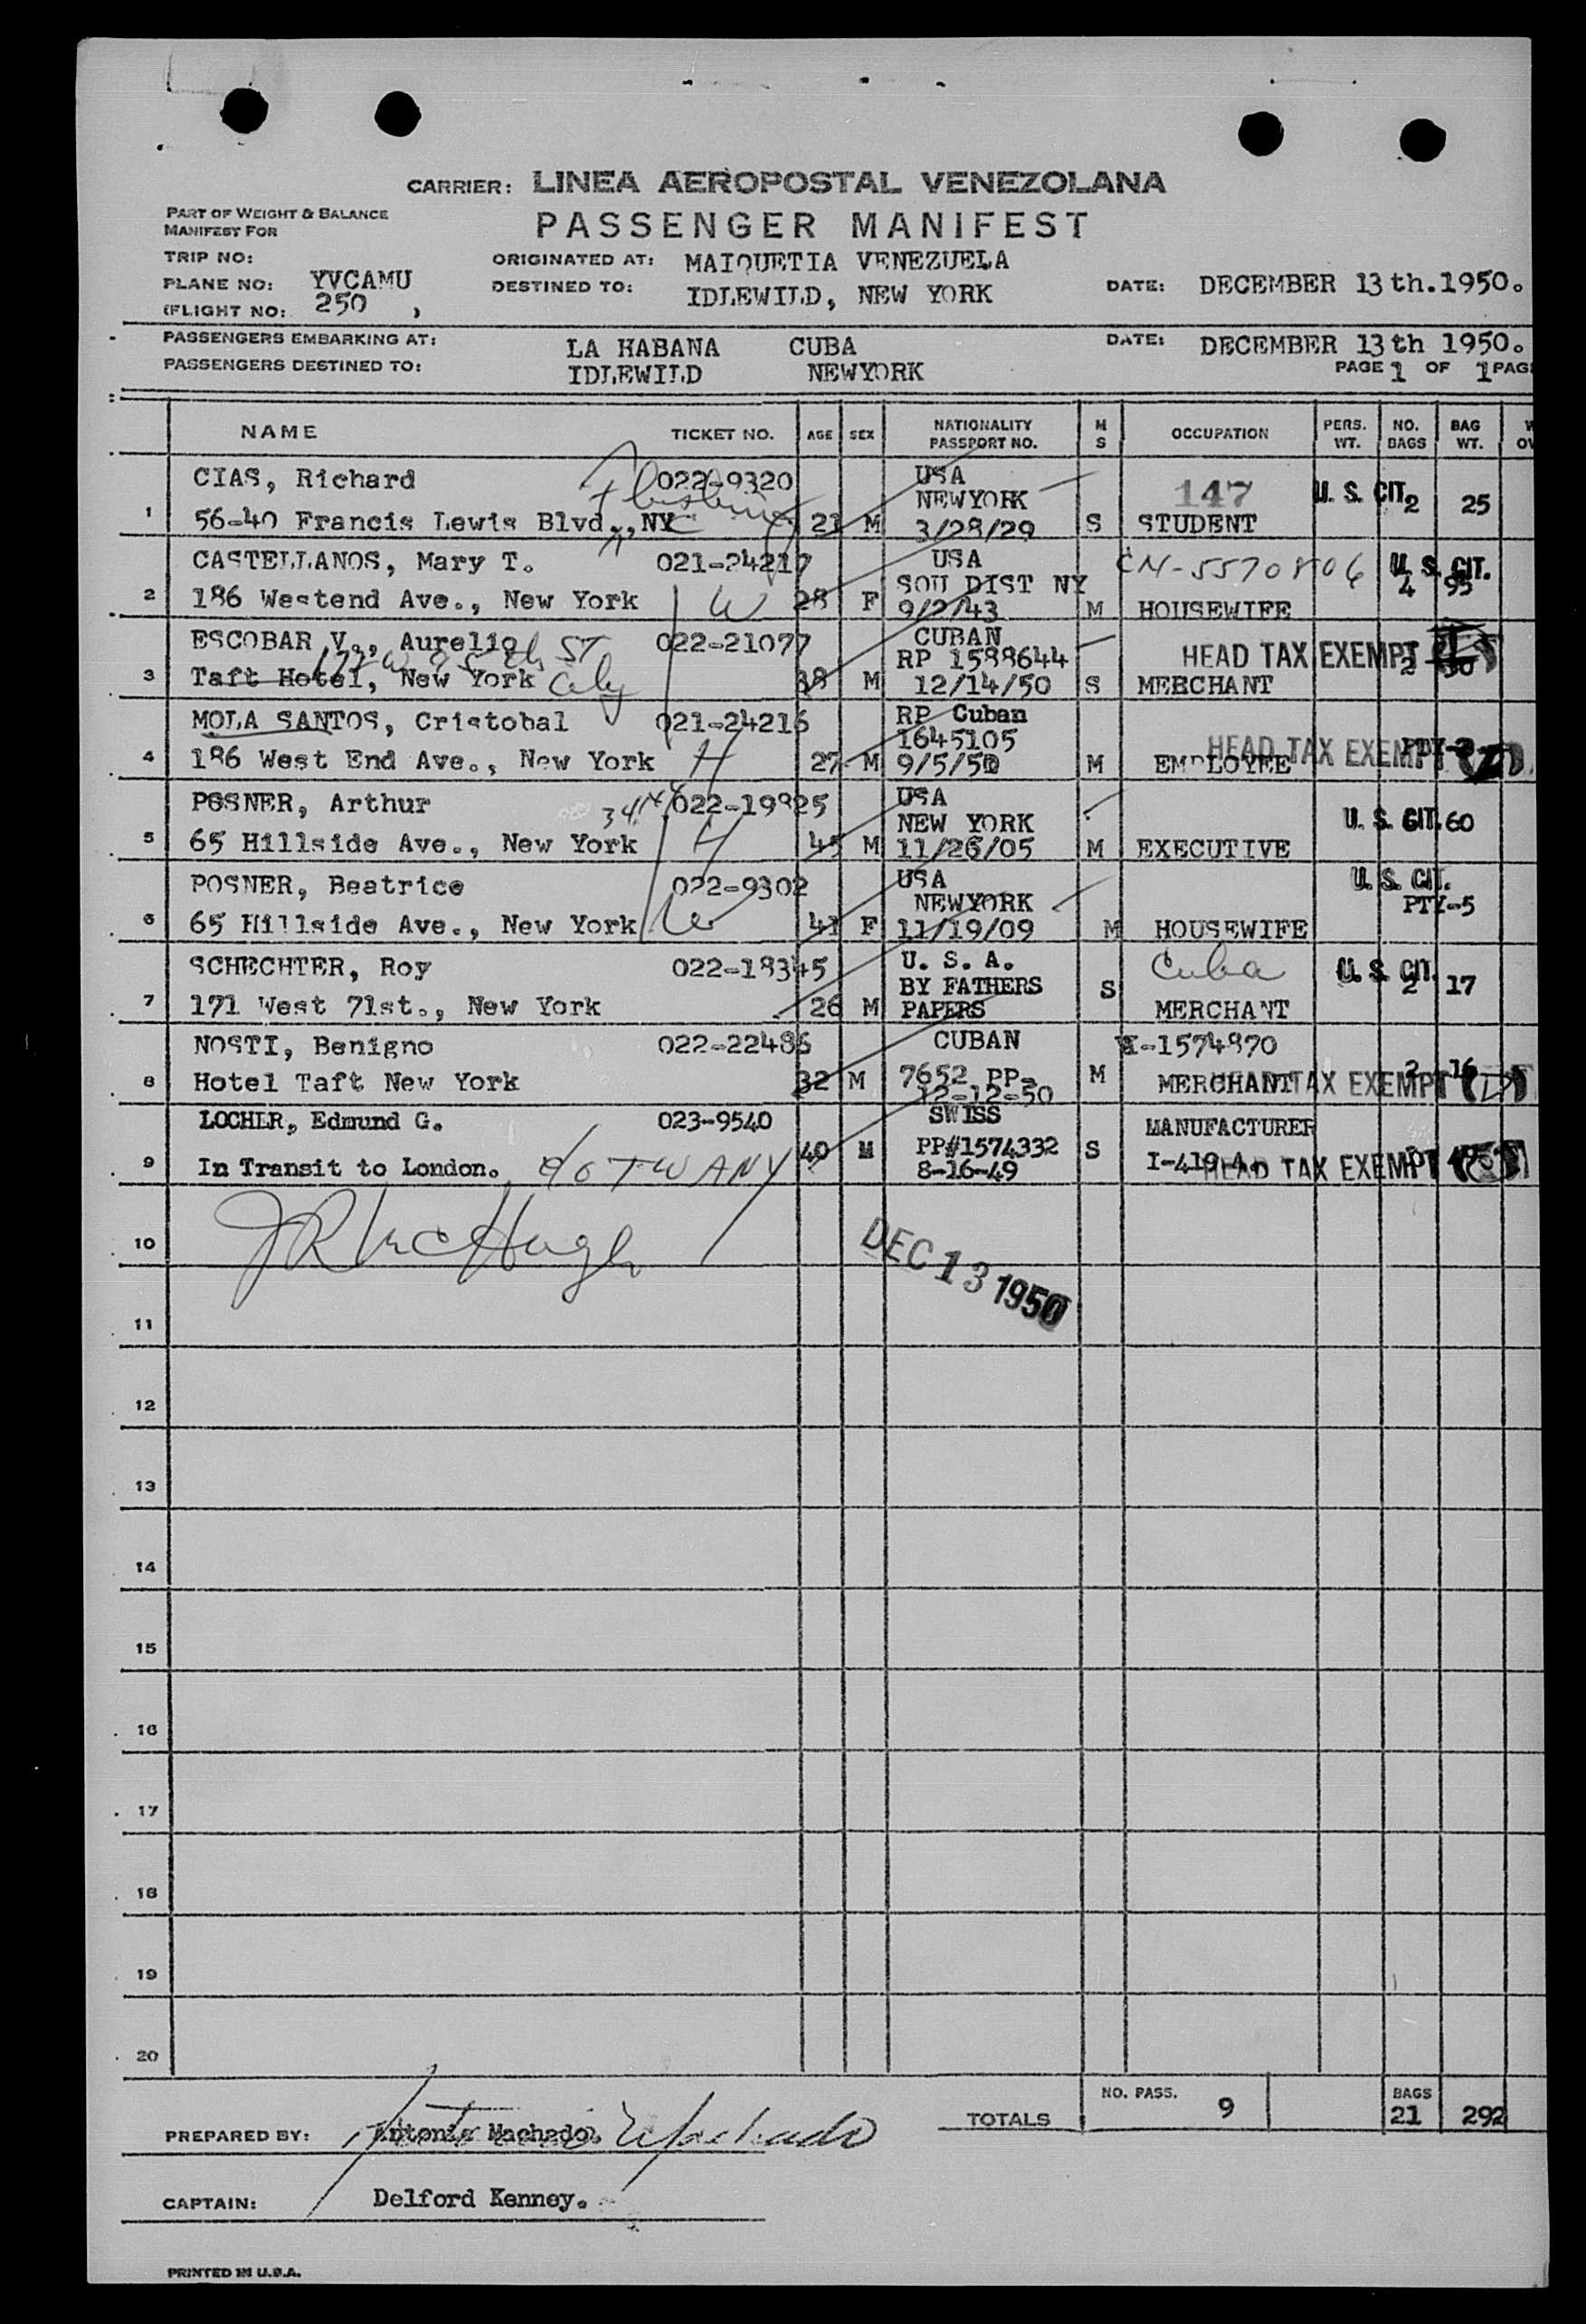 CARRIER: LINEA AEROPOSTAL VENEZOLANA
PART OF WEIGHT & BALANCE
MANIFEST FOR
PASSENGER MANIFEST
TRIP NO:
ORIGINATED AT: MAIQUETIA VENEZUELA
PLANE NO: YVCAMU
DESTINED TO: IDLEWILD, NEW YORK
DATE: DECEMBER 13th.1950.
(FLIGHT NO: 250 )
PASSENGERS EMBARKING AT: LA HABANA CUBA
DATE: DECEMBER 13th 1950.
PASSENGERS DESTINED TO: IDLEWILD NEWYORK
PAGE 1 OF 1 PAG
NAME TICKET NO. AGE SEX NATIONALITY PASSPORT NO. M S OCCUPATION PERS. WT. NO. BAGS BAG WT.
CIAS, Richard 022-9320 USA 147 U. S. CIT.
Flushing NEWYORK 2 25
1 56-40 Francis Lewis Blvd.,NYC 21 M 3/28/29 S STUDENT
CASTELLANOS, Mary T. 021-24217 USA CN-5570806 U. S. CIT.
SOU DIST NY 4 95
2 186 Westend Ave., New York W 28 F 9/2/43 M HOUSEWIFE
ESCOBAR V., Aurelio 022-21077 CUBAN
RP 1588644 HEAD TAX EXEMPT 2 30
3 Taft Hotel, New York City 38 M 12/14/50 S MERCHANT
MOLA SANTOS, Cristobal 021-24216 RP Cuban
1645105 HEAD TAX EXEMPT
4 186 West End Ave., New York H 27 M 9/5/50 M EMPLOYEE
POSNER, Arthur 022-19825 USA
NEW YORK U. S. CIT. 60
5 65 Hillside Ave., New York H 45 M 11/26/05 M EXECUTIVE
POSNER, Beatrice 022-9302 USA U. S. CIT.
NEWYORK PTY-5
6 65 Hillside Ave., New York W 41 F 11/19/09 M HOUSEWIFE
SCHECHTER, Roy 022-18345 U. S. A. Cuba U. S. CIT.
BY FATHERS 2 17
7 171 West 71st., New York 26 M PAPERS S MERCHANT
NOSTI, Benigno 022-22486 CUBAN I-1574870
7652 PP- 2 16
8 Hotel Taft New York 32 M 12-12-50 M MERCHANT HEAD TAX EXEMPT
LOCHLR, Edmund G. 023-9540 SWISS MANUFACTURER
PP#1574332 I-419 A.
9 In Transit to London. c/o TWA NY 40 M 8-16-49 S HEAD TAX EXEMPT
10 JR McHugh
DEC 13 1950
11
12
13
14
15
16
17
18
19
20
TOTALS NO. PASS. 9 BAGS 21 292
PREPARED BY: Antonio Machado. Antonio Machado
CAPTAIN: Delford Kenney.
PRINTED IN U.S.A.